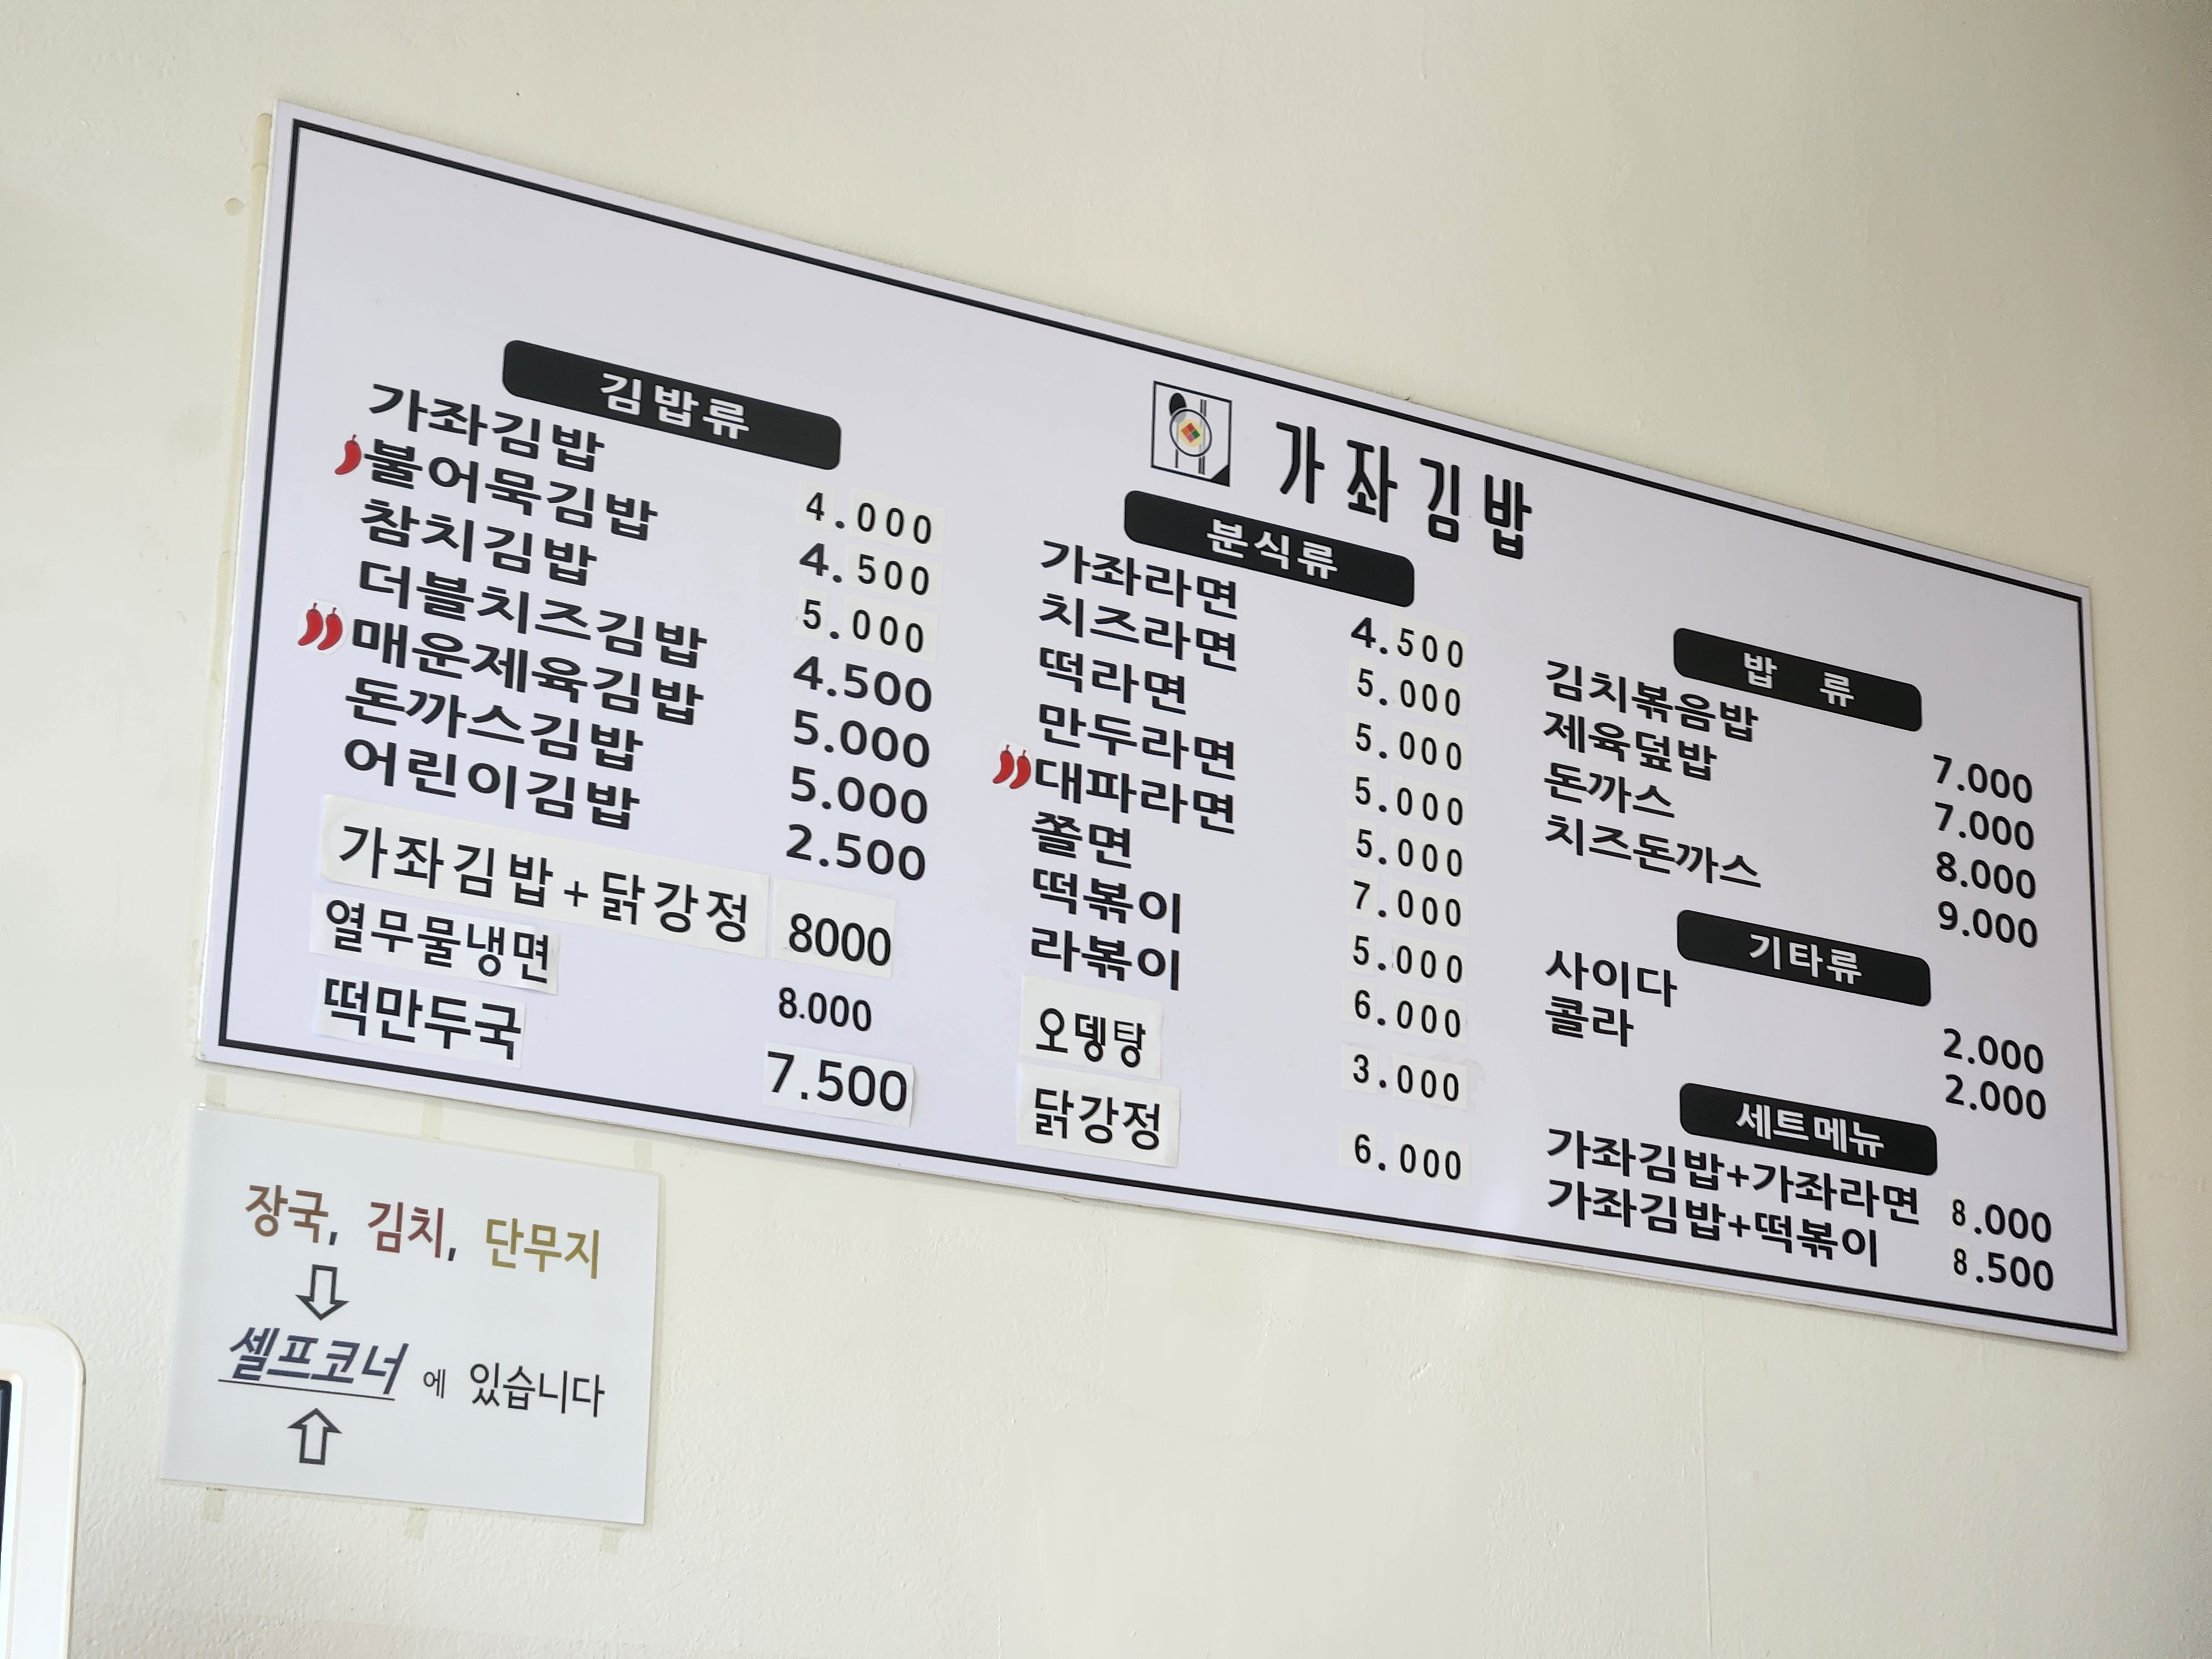 가좌김밥
김밥류
가좌김밥 4.000
불어묵김밥 4.500
참치김밥 5.000
더블치즈김밥 4.500
매운제육김밥 5.000
돈까스김밥 5.000
어린이김밥 2.500
가좌김밥+닭강정 8000
열무물냉면 8.000
떡만두국 7.500
분식류
가좌라면 4.500
치즈라면 5.000
떡라면 5.000
만두라면 5.000
대파라면 5.000
쫄면 7.000
떡볶이 5.000
라볶이 6.000
오뎅탕 3.000
닭강정 6.000
밥 류
김치볶음밥 7.000
제육덮밥 7.000
돈까스 8.000
치즈돈까스 9.000
기타류
사이다 2.000
콜라 2.000
세트메뉴
가좌김밥+가좌라면 8.000
가좌김밥+떡볶이 8.500
장국, 김치, 단무지
셀프코너 에 있습니다